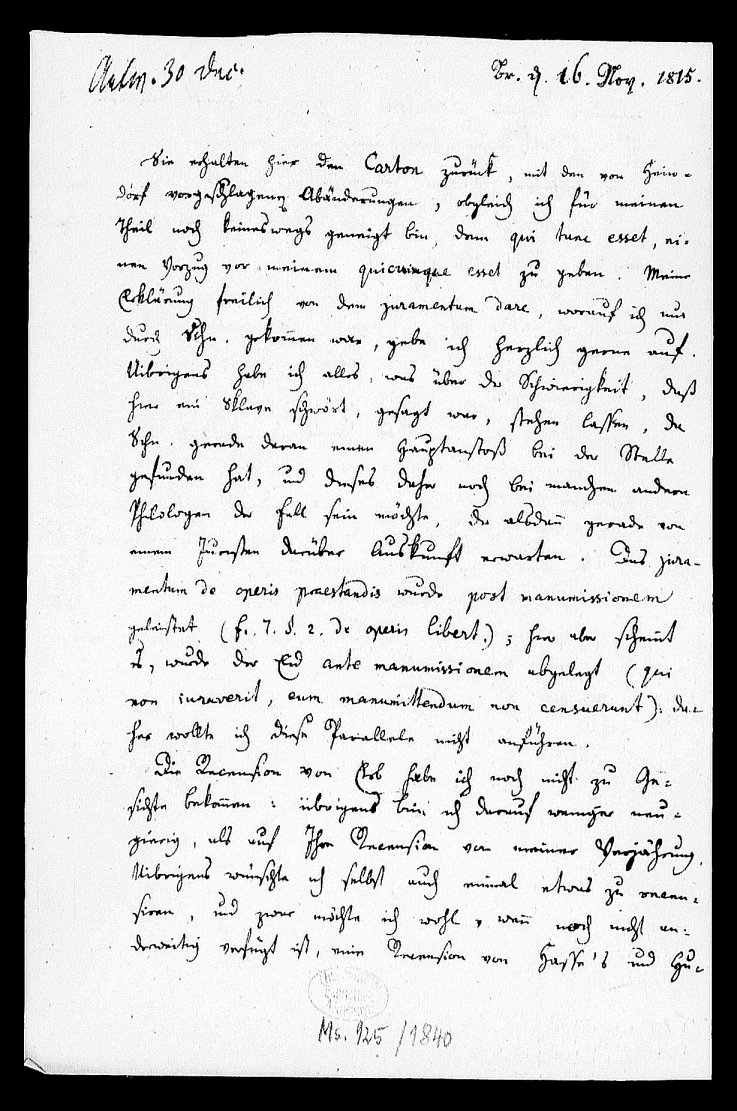 30 Dec.
Br. d. 16. Nov. 1815.
Sie erhalten hier den Carton zurück, mit den von Hein-
dorf vorgeschlagenen Abänderungen, obgleich ich für meinen
Theil noch keineswegs geneigt bin, dem qui tunc esset, ei-
nen Vorzug vor meinem quicumque esset zu geben. Meine
Erklärung freilich von dem juramentum dare, worauf ich nur
durch Schn. gekommen war, gebe ich herzlich gerne auf.
Uibrigens habe ich alles, was über die Schwierigkeit, daß
hier ein Sklave schwört, gesagt war, stehen lassen, da
Schn. gerade daran einen Hauptanstoß bei der Stelle
gefunden hat, und dieses daher noch bei manchen andern
Philologen der Fall sein möchte, die alsdann gerade von
einem Juristen darüber Auskunft erwarten. Das jura-
mentum de operis praestandis wurde post manumissionem
geleistet (fr. 7. §. 2. de operis libert.); hier aber scheint
es, wurde der Eid ante manumissionem abgelegt (qui
non iuraverit, eum manumittendum non censuerunt): da-
her wollte ich diese Parallele nicht anführen.
Die Recension von Erb habe ich noch nicht zu Ge-
sichte bekommen: übrigens bin ich darauf weniger neu-
gierig, als auf Ihre Recension von meiner Verjährung.
Uibrigens wünschte ich selbst auch einmal etwas zu recen-
siren, und zwar möchte ich wohl, wenn noch nicht an-
derweitig verfügt ist, eine Recension von Hasse's und Hu-
Ms. 925/1840